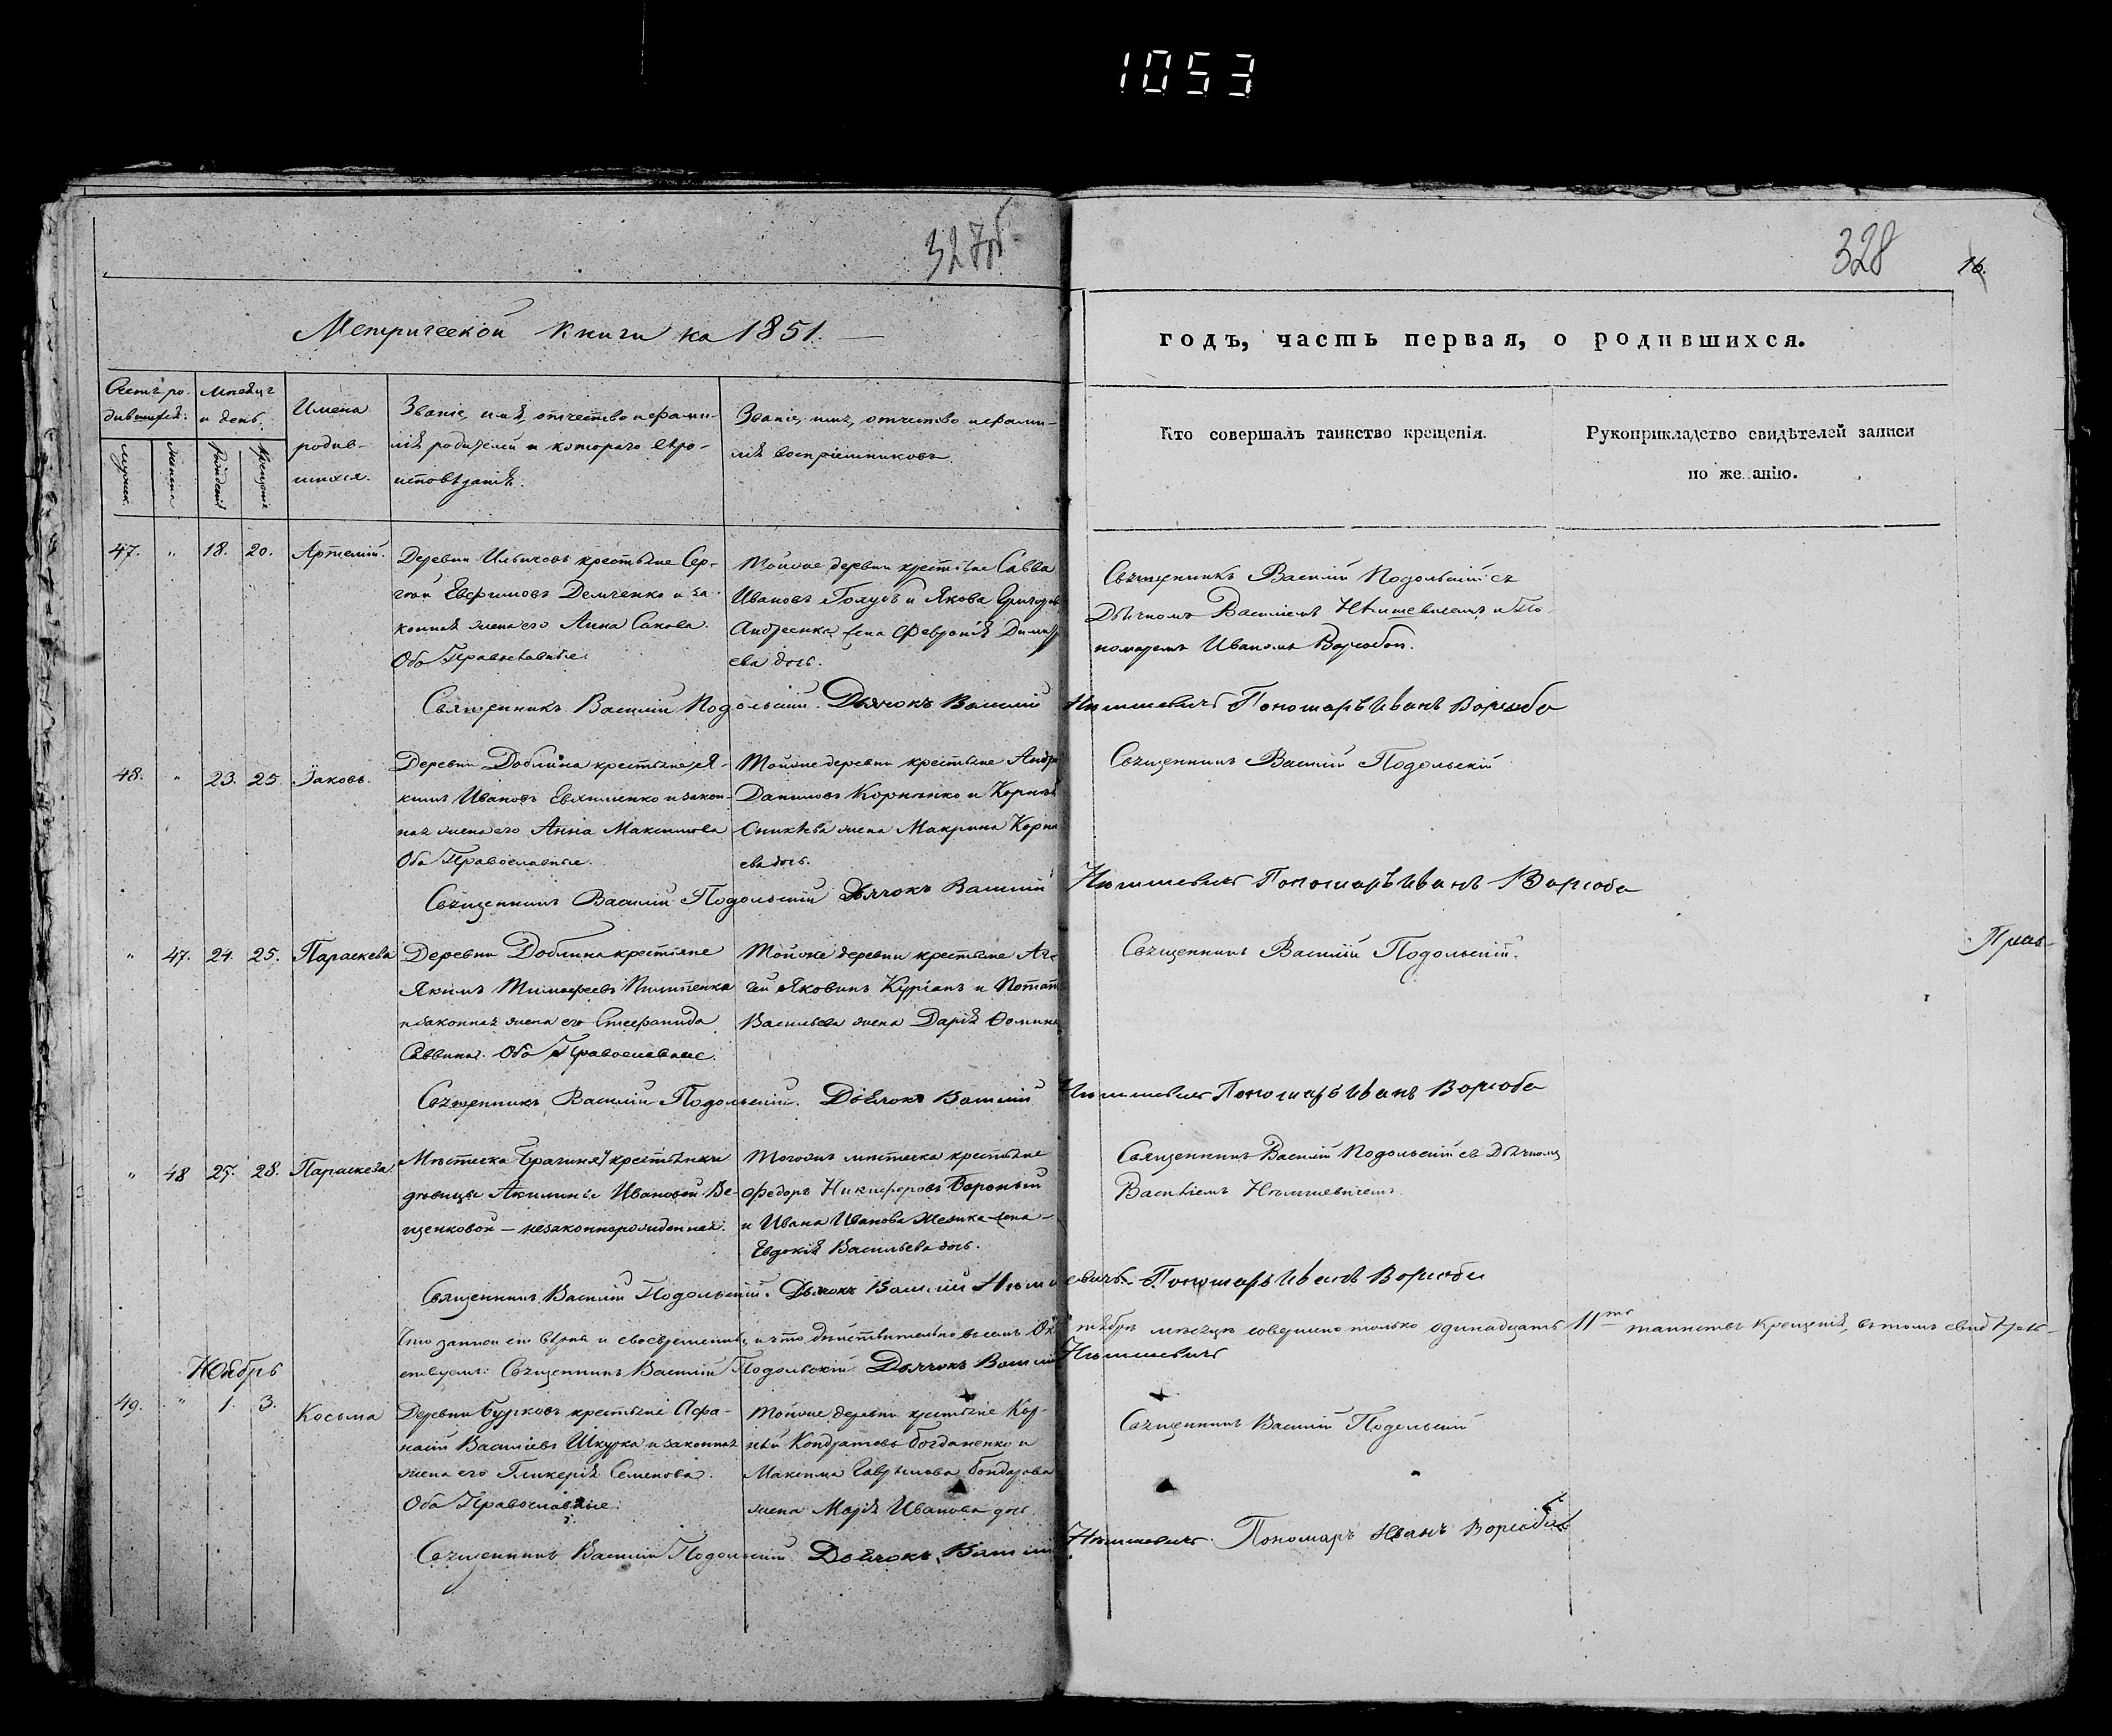 1053
327об
328
16.
Метрической книги на 1851.
годъ, часть первая, о родившихся.
Счетъ ро-
дившихся:
Мѣсяцъ
и день.
Имена
родив-
шихся.
Званіе, имя, отчество и фами-
лія родителей и котораго вѣро-
исповѣданія.
Званіе, имя, отчество и фами-
лія воспріемниковъ.
Кто совершалъ таинство крещенія.
Рукоприкладство свидѣтелей записи
по же анію.
47. " 18. 20. Артемій.
Деревни Ильичовъ крестьяне Сер-
гѣй Евфимовъ Демченко и за-
конная жена его Анна Савова.
Оба Православные.
Тойже деревни крестьяне Савва
Ивановъ Голубъ и Якова Григорьев
Андреенка жена Февронія Димитр
ева дочь.
Священникъ Василій Подольскій съ
Дьячкомъ Василіемъ Нѣмшевичемъ и По-
номаремъ Иваномъ Воробьой.
Священникъ Василій Подольскій. Дьячокъ Василій Нѣмшевичъ Пономарь Иванъ Воробе
48. " 23. 25 Іаковъ.
Деревни Доблина крестьяне Я-
кимъ Ивановъ Евхименко и закон-
ная жена его Анна Максимова
Оба Православные.
Тойже деревни крестьяне Андре
Даниловъ Корнѣнко и Корнѣя
жена Макрина Корни
ева дочь.
Священникъ Василій Подольскій
Священникъ Василій Подольскій Дьячокъ Василій Нѣмшевичъ Пономарь Иванъ Воробе
" 47. 24. 25. Параскева
Деревни Доблина крестьяне
Якимъ Тимофеевъ Пилипенко
и законная жена его Стефанида
Саввина. Оба Православные.
Тойже деревни крестьяне Ал
ѣй Яковинъ Курганъ и Потап
Васильева жена Дарія Ѳомина
Священникъ Василій Подольскій.
Прав-
Священникъ Василій Подольскій. Дьячокъ Василій Нѣмшевичъ Пономарь Иванъ Воробе
" 48 27. 28. Параскева
Мѣстечка Брагиня крестьянки
дѣвицы Акилины Ивановой Ве-
щенковой — незаконнорожденная.
Тогожъ мѣстечка крестьяне
Федоръ Никифоровъ Вороный
и Ивана Иванова жена
Евдокія Васильева дочь.
Священникъ Василій Подольскій съ Дьячкомъ
Василіемъ Нѣмшевичемъ.
Священникъ Василій Подольскій. Дьячокъ Василій Нѣмшевичъ. Пономарь Иванъ Воробе
Что записи сіи вѣрны и своевременны, и что дѣйствительно въ семъ Октябрѣ мѣсяцѣ совершено только одинадцать 11ть таинствъ крещенія, въ томъ свидѣтель-
ствуемъ: Священникъ Василій Подольскій Дьячокъ Василій Нѣмшевичъ
Ноябрь
49. " 1. 3. Косьма
Деревни Бурковъ крестьяне Афа-
насій Василіевъ Шкурка и законная
жена его Гликерія Семенова.
Оба Православные.
Тойже деревни крестьяне Кор-
нѣй Кондратовъ Богданенко и
Максима Гаврилова Бондарова
жена Марія Иванова дочь
Священникъ Василій Подольскій
Священникъ Василій Подольскій Дьячокъ Василій Нѣмшевичъ. Пономарь Иванъ Воробе